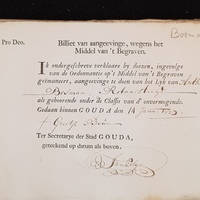 Pro Deo.
Billiet van aangeevinge, wegens het
Middel van 't Begraven.
Ik ondergeschreve verklaare by deezen, ingevolge
van de Ordonnantie op 't Middel van 't Begraven
geëmaneert, aangeevinge te doen van het Lyk van
als gehoorende onder de Classis van d'onvermogende.
Gedaan binnen GOUDA, den 14
Ter Secretarye der Stad GOUDA,
geteekend op datum als boven.